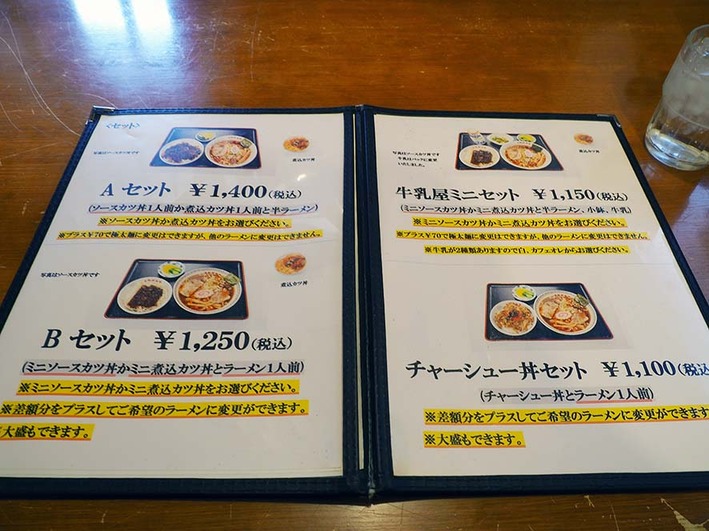 <セット>
写真はソースカツ丼です
煮込カツ丼
A セット ￥1,400(税込)
(ソースカツ丼1人前か煮込カツ丼1人前と半ラーメン)
※ソースカツ丼か煮込カツ丼をお選びください。
※プラス￥70で極太麺に変更はできますが、他のラーメンに変更はできません。
写真はソースカツ丼です
煮込カツ丼
B セット ￥1,250(税込)
(ミニソースカツ丼かミニ煮込カツ丼とラーメン1人前)
※ミニソースカツ丼かミニ煮込カツ丼をお選びください。
※差額分をプラスしてご希望のラーメンに変更ができます。
大盛もできます。
写真はソースカツ丼です
牛乳はパックに変更
いたしました。
煮込カツ丼
牛乳屋ミニセット ￥1,150(税込)
(ミニソースカツ丼かミニ煮込カツ丼と半ラーメン、小鉢、牛乳)
※ミニソースカツ丼かミニ煮込カツ丼をお選びください。
※プラス￥70で極太麺に変更はできますが、他のラーメンに変更はできません。
※牛乳が2種類ありますので白、カフェオレからお選びください。
チャーシュー丼セット ￥1,100(税込
(チャーシュー丼とラーメン1人前)
※差額分をプラスしてご希望のラーメンに変更ができます
※大盛もできます。